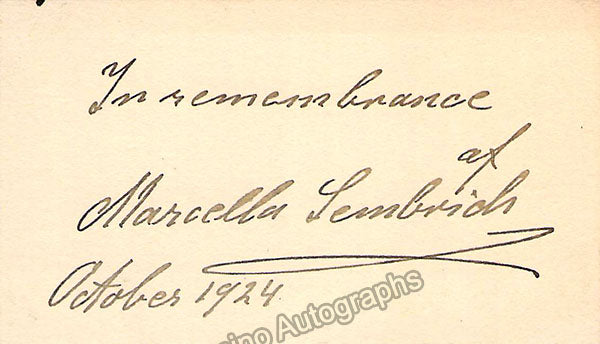 In remembrance
of
Marcella Sembrich
October 1924
sino Autographs